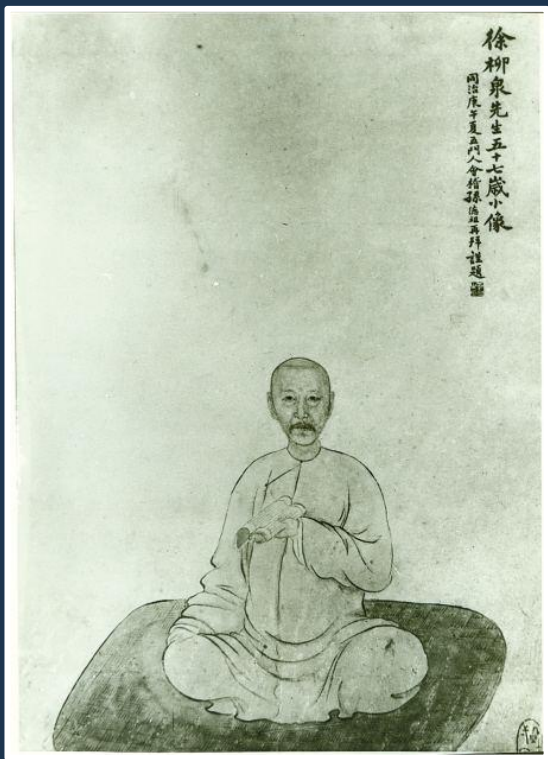 徐柳泉先生五十七歲小像
同治庚午夏五門人會稽孫德祖再拜謹題